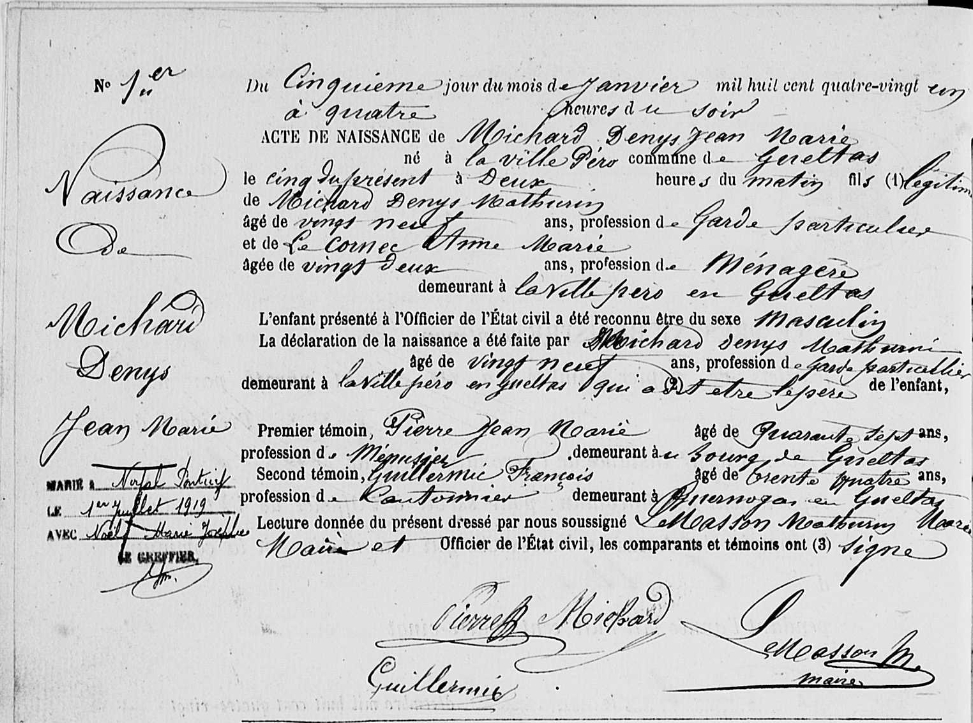 No 1er
Naissance
De
Michard
Denys
Jean Marie
MARIÉ à Noyal Pontivy
LE 1er Juillet 1919
AVEC Noël Marie Josèphe
LE GREFFIER,
Du Cinquième jour du mois de Janvier mil huit cent quatre-vingt un
à quatre heures du soir
ACTE DE NAISSANCE de Michard Denys Jean Marie
né à la ville Péro commune de Gueltas
le cinq du présent à Deux heures du matin fils (1) légitim
de Michard Denys Mathurin
âgé de vingt neuf ans, profession de Garde particulier
et de Le Cornec Anne Marie
âgée de vingt deux ans, profession de Ménagère
demeurant à la ville pero en Gueltas
L'enfant présenté à l'Officier de l'État civil a été reconnu être du sexe Masculin
La déclaration de la naissance a été faite par Michard Denys Mathurin
âgé de vingt neuf ans, profession de garde particullier
demeurant à la ville péro en Gueltas qui a dit etre le père (2) de l'enfant,
Premier témoin, Pierre Jean Marie âgé de Quarante Sept ans,
profession de Menusier demeurant au bourg de Gueltas
Second témoin, Guillermic François âgé de trente quatre ans,
profession de Cantonnier demeurant à en Gueltas
Lecture donnée du présent dressé par nous soussigné Le Masson Mathurin Marie
Maire et Officier de l'État civil, les comparants et témoins ont (3) signé
Pierre Michard
Le Masson M.
maire
Guillermic